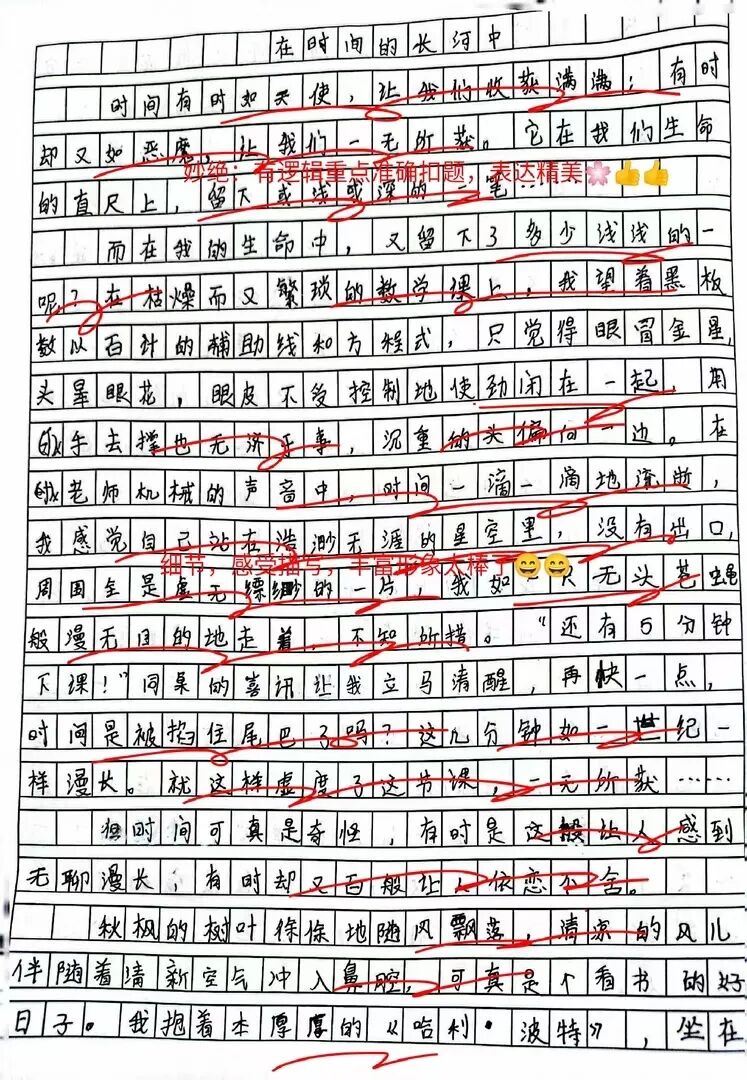 在时间的长河中
时间有时如天使，让我们收获满满；有时
却又如恶魔，让我们一无所获。它在我们生命
妙绝：有逻辑重点准确扣题，表达精美🌸👍👍
的直尺上，留下或浅或深的一笔…
而在我的生命中，又留下了多少浅浅的一
呢？在枯燥而又繁琐的数学课上，我望着黑板
数以百计的辅助线和方程式，只觉得眼冒金星，
头晕眼花，眼皮不受控制地使劲闭在一起，用
手去撑也无济于事，沉重的头偏向一边。在
老师机械的声音中，时间一滴一滴地流逝，
我感觉自己站在浩渺无涯的星空里，没有出口，
细节，感受描写，丰富形象太棒了😄😄
周围全是虚无缥缈的一片，我如一只无头苍蝇
般漫无目的地走着，不知所措。“还有5分钟
下课！”同桌的喜讯让我立马清醒，再快一点，
时间是被掐住尾巴了吗？这几分钟如一世纪一
样漫长。就这样虚度了这节课，一无所获……
但时间可真是奇怪，有时是这般让人感到
无聊漫长；有时却又百般让人依恋不舍。
秋枫的树叶徐徐地随风飘落，清凉的风儿
伴随着清新空气冲入鼻腔，可真是个看书的好
日子。我抱着本厚厚的《哈利·波特》，坐在